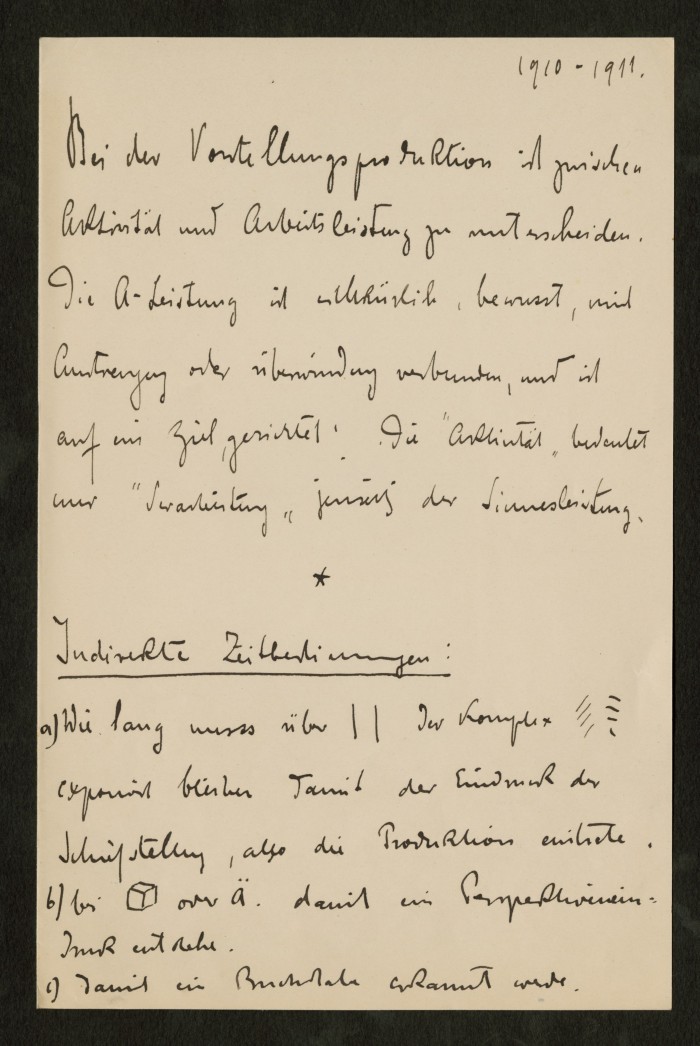 1910-1911.
Bei der Vorstellungsproduktion ist zwischen
Aktivität und Arbeitsleistung zu unterscheiden.
Die A-Leistung ist willkürlich, bewusst, mit
Anstrengung oder Überwindung verbunden, und ist
auf ein Ziel „gerichtet“. Die "Aktivität„ bedeutet
nur "Verarbeitung„ jenseits der Sinnesleistung.
*
Indirekte Zeitbestimmungen:
a) Wie lang muss über || der Komplex
exponiert bleiben damit der Eindruck der
Schiefstellung, also die Produktion eintrete.
b) bei oder Ä. damit ein Perspektivenein=
druck entstehe.
c) damit ein Buchstabe erkannt werde.